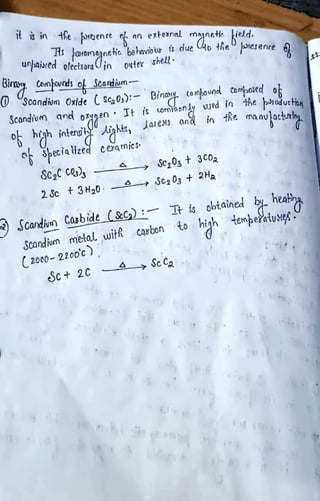 it is in the presence of an external magnetic field.
Its paramagnetic behaviour is due to the presence of
unpaired electrons in outer shell.
Binary Compounds of Scandium—
① Scandium Oxide (Sc2O3):— Binary compound composed of
Scandium and oxygen. It is commonly used in the production
of high intensity lights, lasers and in the manufacturing
of specialized ceramics.
Sc2(CO3)3 —Δ→ Sc2O3 + 3CO2
2Sc + 3H2O —Δ→ Sc2O3 + 2H2
② Scandium Carbide (ScC2):— It is obtained by heating
Scandium metal with carbon to high temperatures.
(2000-2200°C)
Sc + 2C —Δ→ ScC2